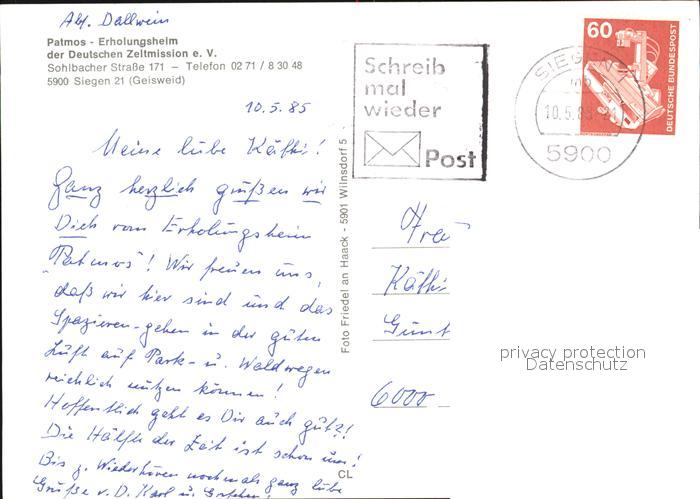 Abs. Dallwein
Patmos - Erholungsheim
der Deutschen Zeltmission e. V.
Sohlbacher Straße 171 – Telefon 02 71 / 8 30 48
5900 Siegen 21 (Geisweid)
10.5.85
Meine liebe Käthi!
Ganz herzlich grüßen wir
Dich vom Erholungsheim
"Patmos"! Wir freuen uns,
daß wir hier sind und das
Spazieren-gehen in der guten
Luft auf Park- u. Waldwegen
reichlich nutzen können!
Hoffentlich geht es Dir auch gut?!
Die Hälfte der Zeit ist schon um!
Bis z. Wiederhören nochmals ganz liebe
Grüße v. D. Karl u. Gretchen!
CL
Foto Friedel an Haack - 5901 Wilnsdorf 5
Schreib
mal
wieder
Post
SIEGEN 1
10.5.85
5900
60
DEUTSCHE BUNDESPOST
Frau
Käthi
Günt
6000
privacy protection
Datenschutz